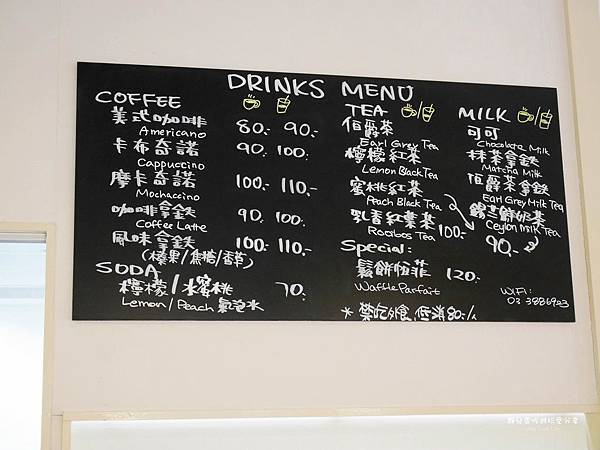 DRINKS MENU
COFFEE
美式咖啡 80.- 90.-
Americano
卡布奇諾 90. 100.
Cappuccino
摩卡奇諾 100.- 110.-
Mochaccino
咖啡拿鉄 90. 100.
Coffee Latte
風味拿鉄 100.- 110.-
(榛果/焦糖/香草)
SODA
檸檬/蜜桃 70.-
Lemon/Peach 氣泡水
TEA /
伯爵茶
Earl Grey Tea
檸檬紅茶
Lemon Black Tea
蜜桃紅茶
Peach Black Tea
乳香紅葉茶 100.-
Rooibos Tea
Special:
鬆餅怕菲 120.-
Waffle Parfait
* 禁吃外食,低消80.-/人
MILK /
可可
Chocolate Milk
抹茶拿鉄
Matcha Milk
伯爵茶拿鉄
Earl Grey Milk Tea
錫兰鮮奶茶
Ceylon Milk Tea
90.-
WIFI:
03 3886923